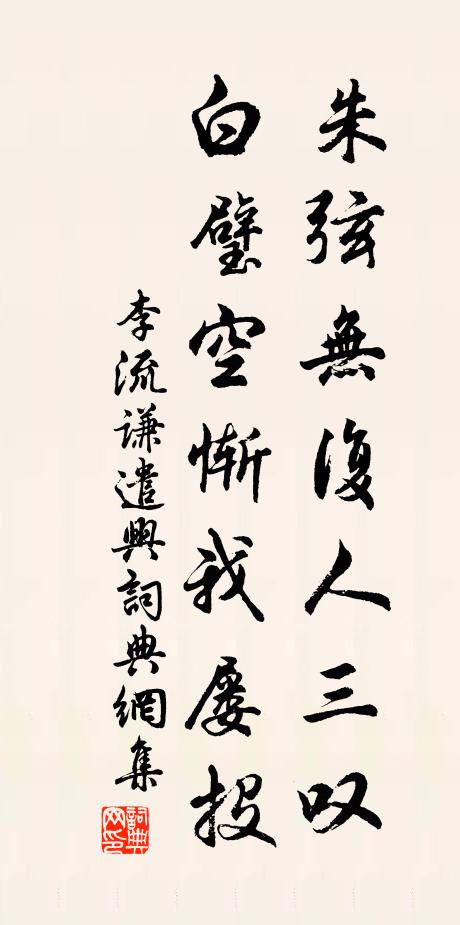 朱弦無復人三叹
白璧空慚我屡投
李流谦遣興詞典網集
詞典网印